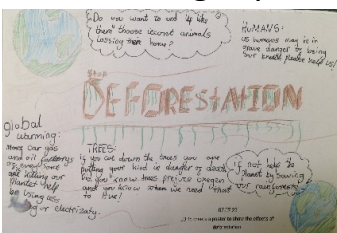 Do you want to end up like
them? those inocent animals
loosing there home?
HUMANS:
us humans may is in
grave danger of losing
our breath please help us!
Stop
DEFOREStAtION
global
warming:
many car gas
and oil factorys
are killing our
planet help
by using less
electrizaty.
TREES:
if you cut down the trees you are
putting your kind in danger of death
did you know trees produce oxegen
and you know when we need that
to live!
if not help the
planet by saving
our rainforests
to create a poster to share the effects of
deforestation